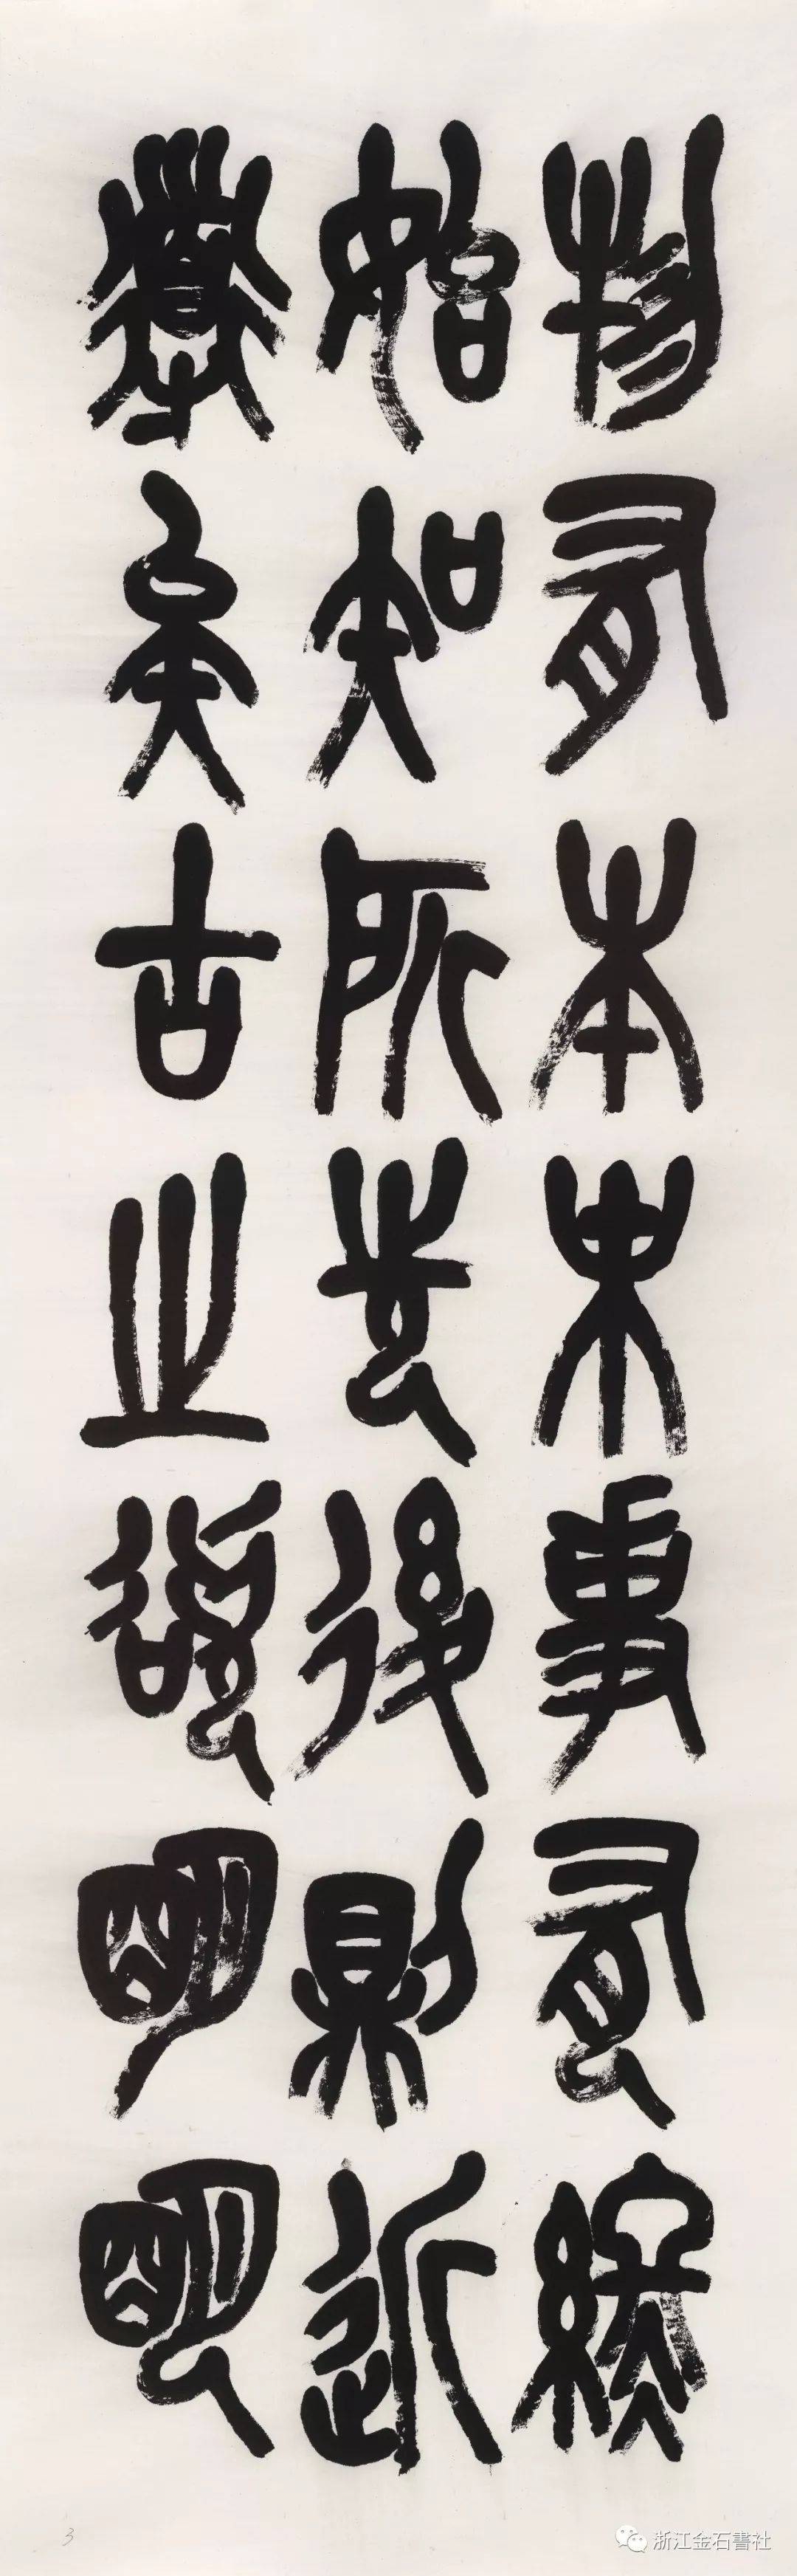 物有本末事有終
始知所先後則近
道矣古之欲明明
3
浙江金石書社